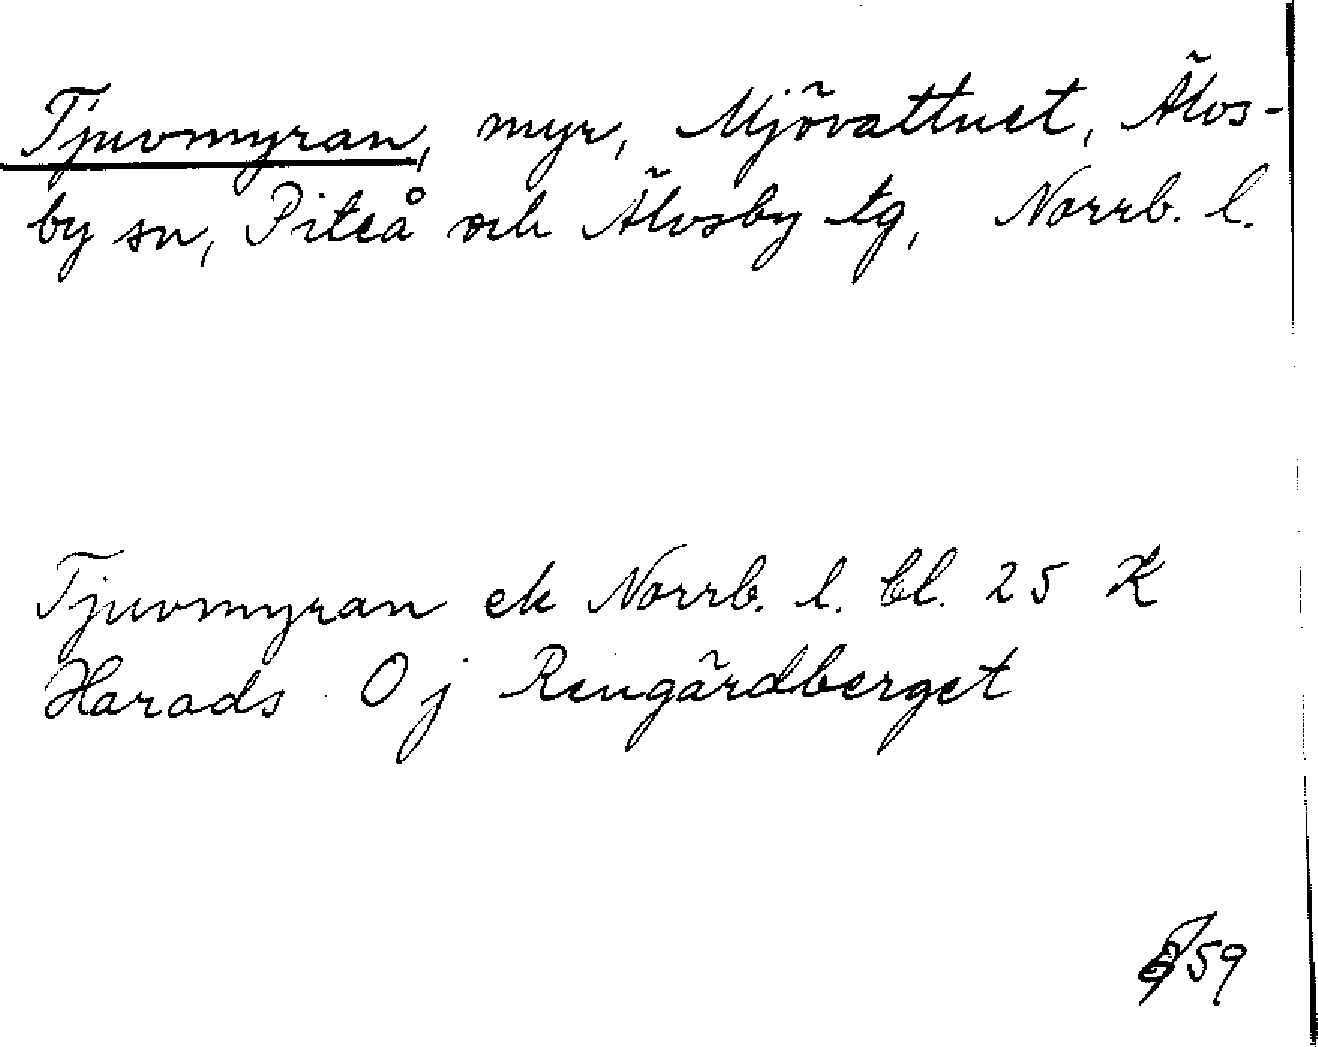 Tjuvmyran, myr, Mjövattnet, Älvs-
by sn, Piteå och Älvsby tg, Norrb. l.
Tjuvmyran ek Norrb. l. bl. 25 K
Harads 0 j Rengårdberget
59